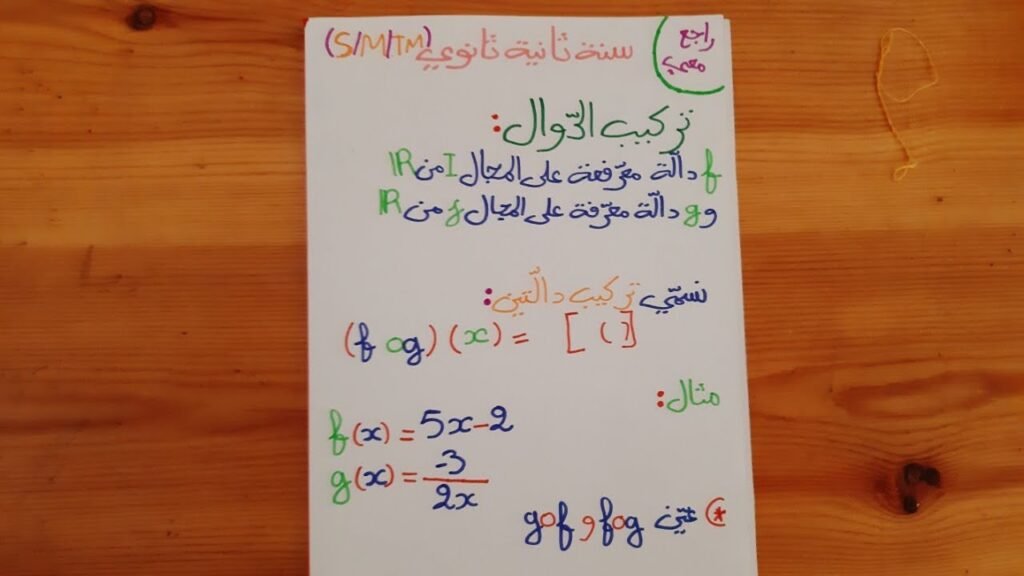 راجع معي
سنة ثانية ثانوي (S/M/TM)
تركيب الدّوال:
f دالّة معرّفة على المجال I من IR
و g دالّة معرّفة على المجال J من IR
نسمّي تركيب دالّتين:
(f o g) (x) = [ ( ) ]
مثال:
f(x) = 5x-2
g(x) = -3/2x
*) عيّن fog و gof